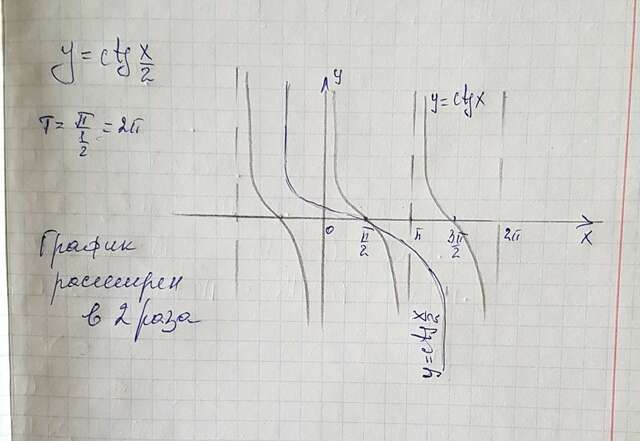 y = ctg x/2
T = π/(1/2) = 2π
График
расширен
в 2 раза
y
y = ctg x
0
π/2
π
3π/2
2π
x
y = ctg x/2